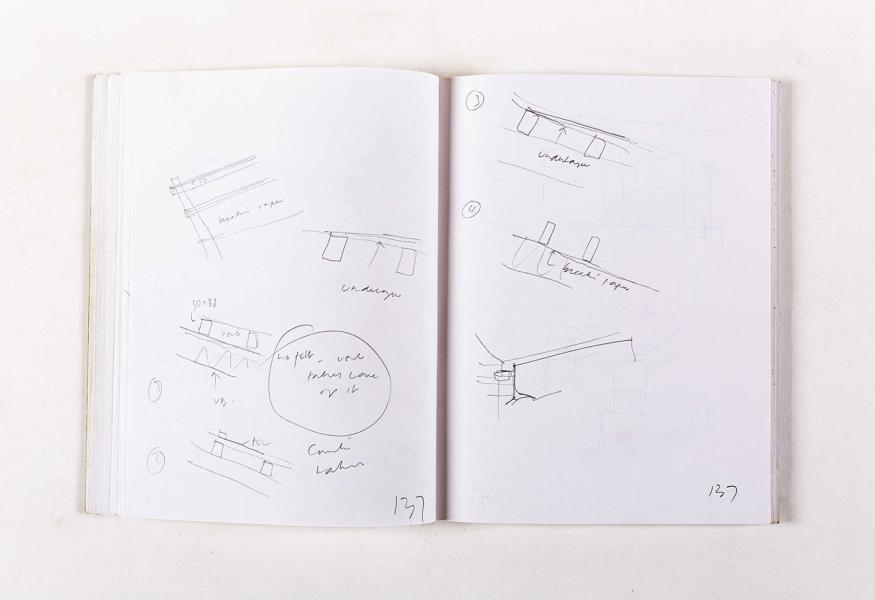 breathi paper
underlayer
50x38
vent
VB.
no felt - vent
takes care
of it
1
2
felt
137
3
underlayer
4
breathi paper
137